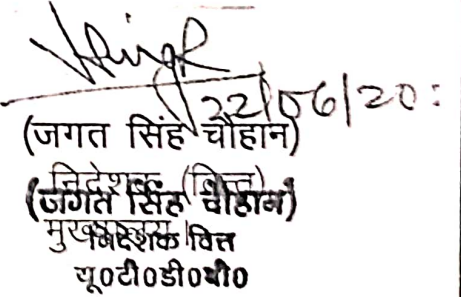 22/06/20:
(जगत सिंह चौहान)
निदेशक (वित्त)
(जगत सिंह चौहान)
मुख्यालय।
निदेशक वित्त
यू0टी0डी0बी0